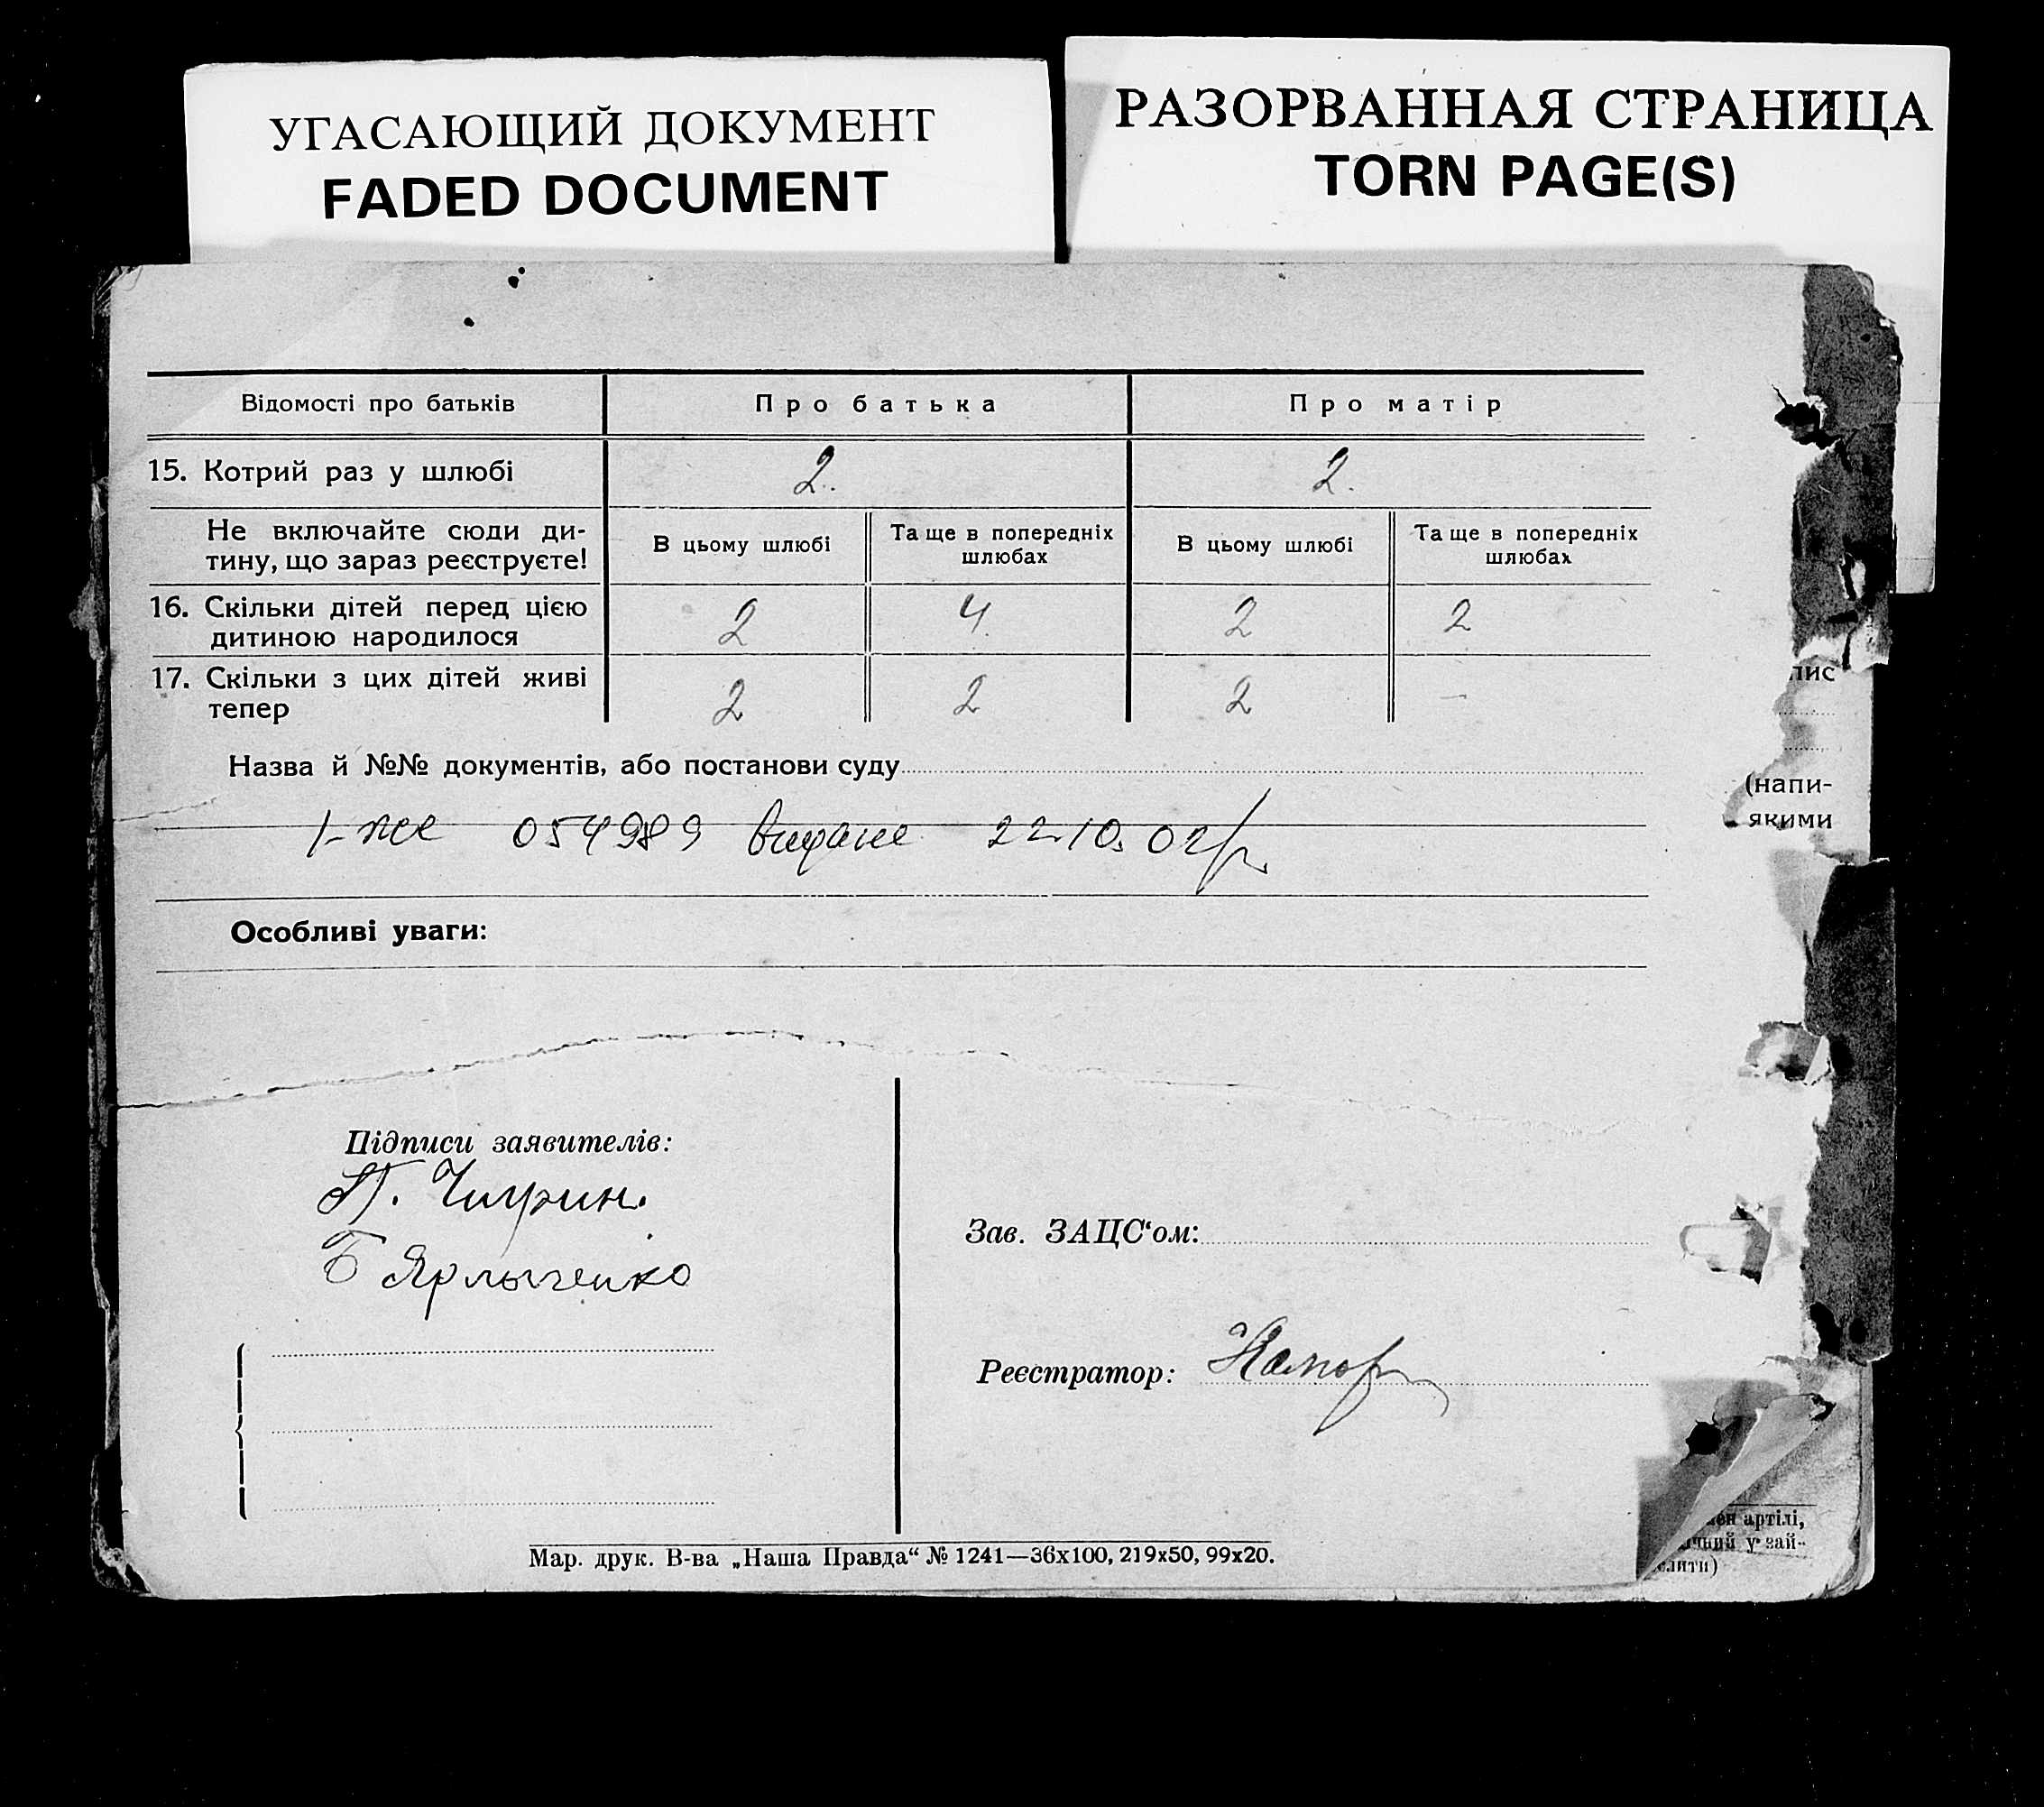 УГАСАЮЩИЙ ДОКУМЕНТ
FADED DOCUMENT
РАЗОРВАННАЯ СТРАНИЦА
TORN PAGE(S)
Відомості про батьків Про батька Про матір
15. Котрий раз у шлюбі 2. 2.
Не включайте сюди ди-
тину, що зараз реєструєте!
В цьому шлюбі
Та ще в попередніх
шлюбах
В цьому шлюбі
Та ще в попередніх
шлюбах
16. Скільки дітей перед цією
дитиною народилося
2 4. 2 2
17. Скільки з цих дітей живі
тепер
2 2 2 –
Назва й №№ документів, або постанови суду
054989 видане 22.10.02р.
Особливі уваги:
Підписи заявителів:
П. Чигрин.
Б Ярлыченко
Зав. ЗАЦС‘ом:
Реєстратор:
Мар. друк. В-ва „Наша Правда“ № 1241—36х100, 219х50, 99х20.
пис
(напи-
якими
артілі,
у зай-